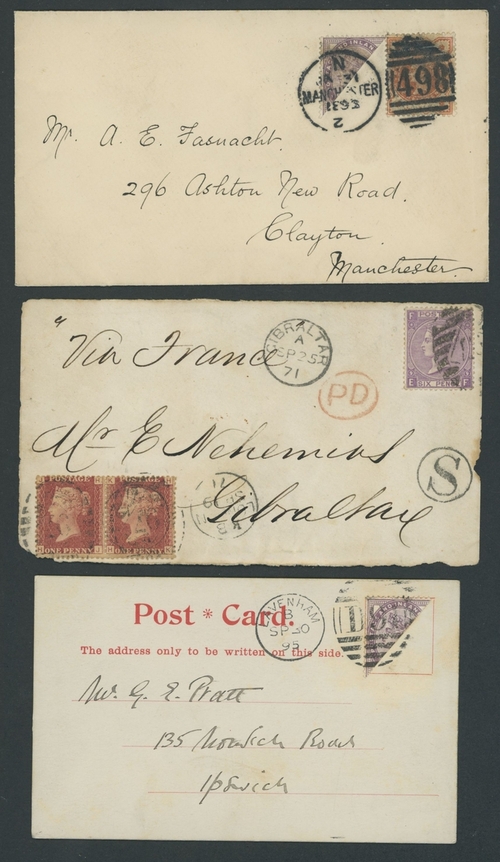 MANCHESTER
2
498
Mr. A. E. Fasnacht.
296 Ashton New Road.
Clayton.
Manchester.
"Via France
GIBRALTAR
A
SP 25
71
PD
POSTAGE
SIX PENCE
Mr E Nehemias
S
POSTAGE POSTAGE
ONE PENNY ONE PENNY
Gibraltar
Post * Card.
LAVENHAM
B
SP 30
95
The address only to be written on this side.
Mr. G. E. Pratt
135 Norwich Road
Ipswich